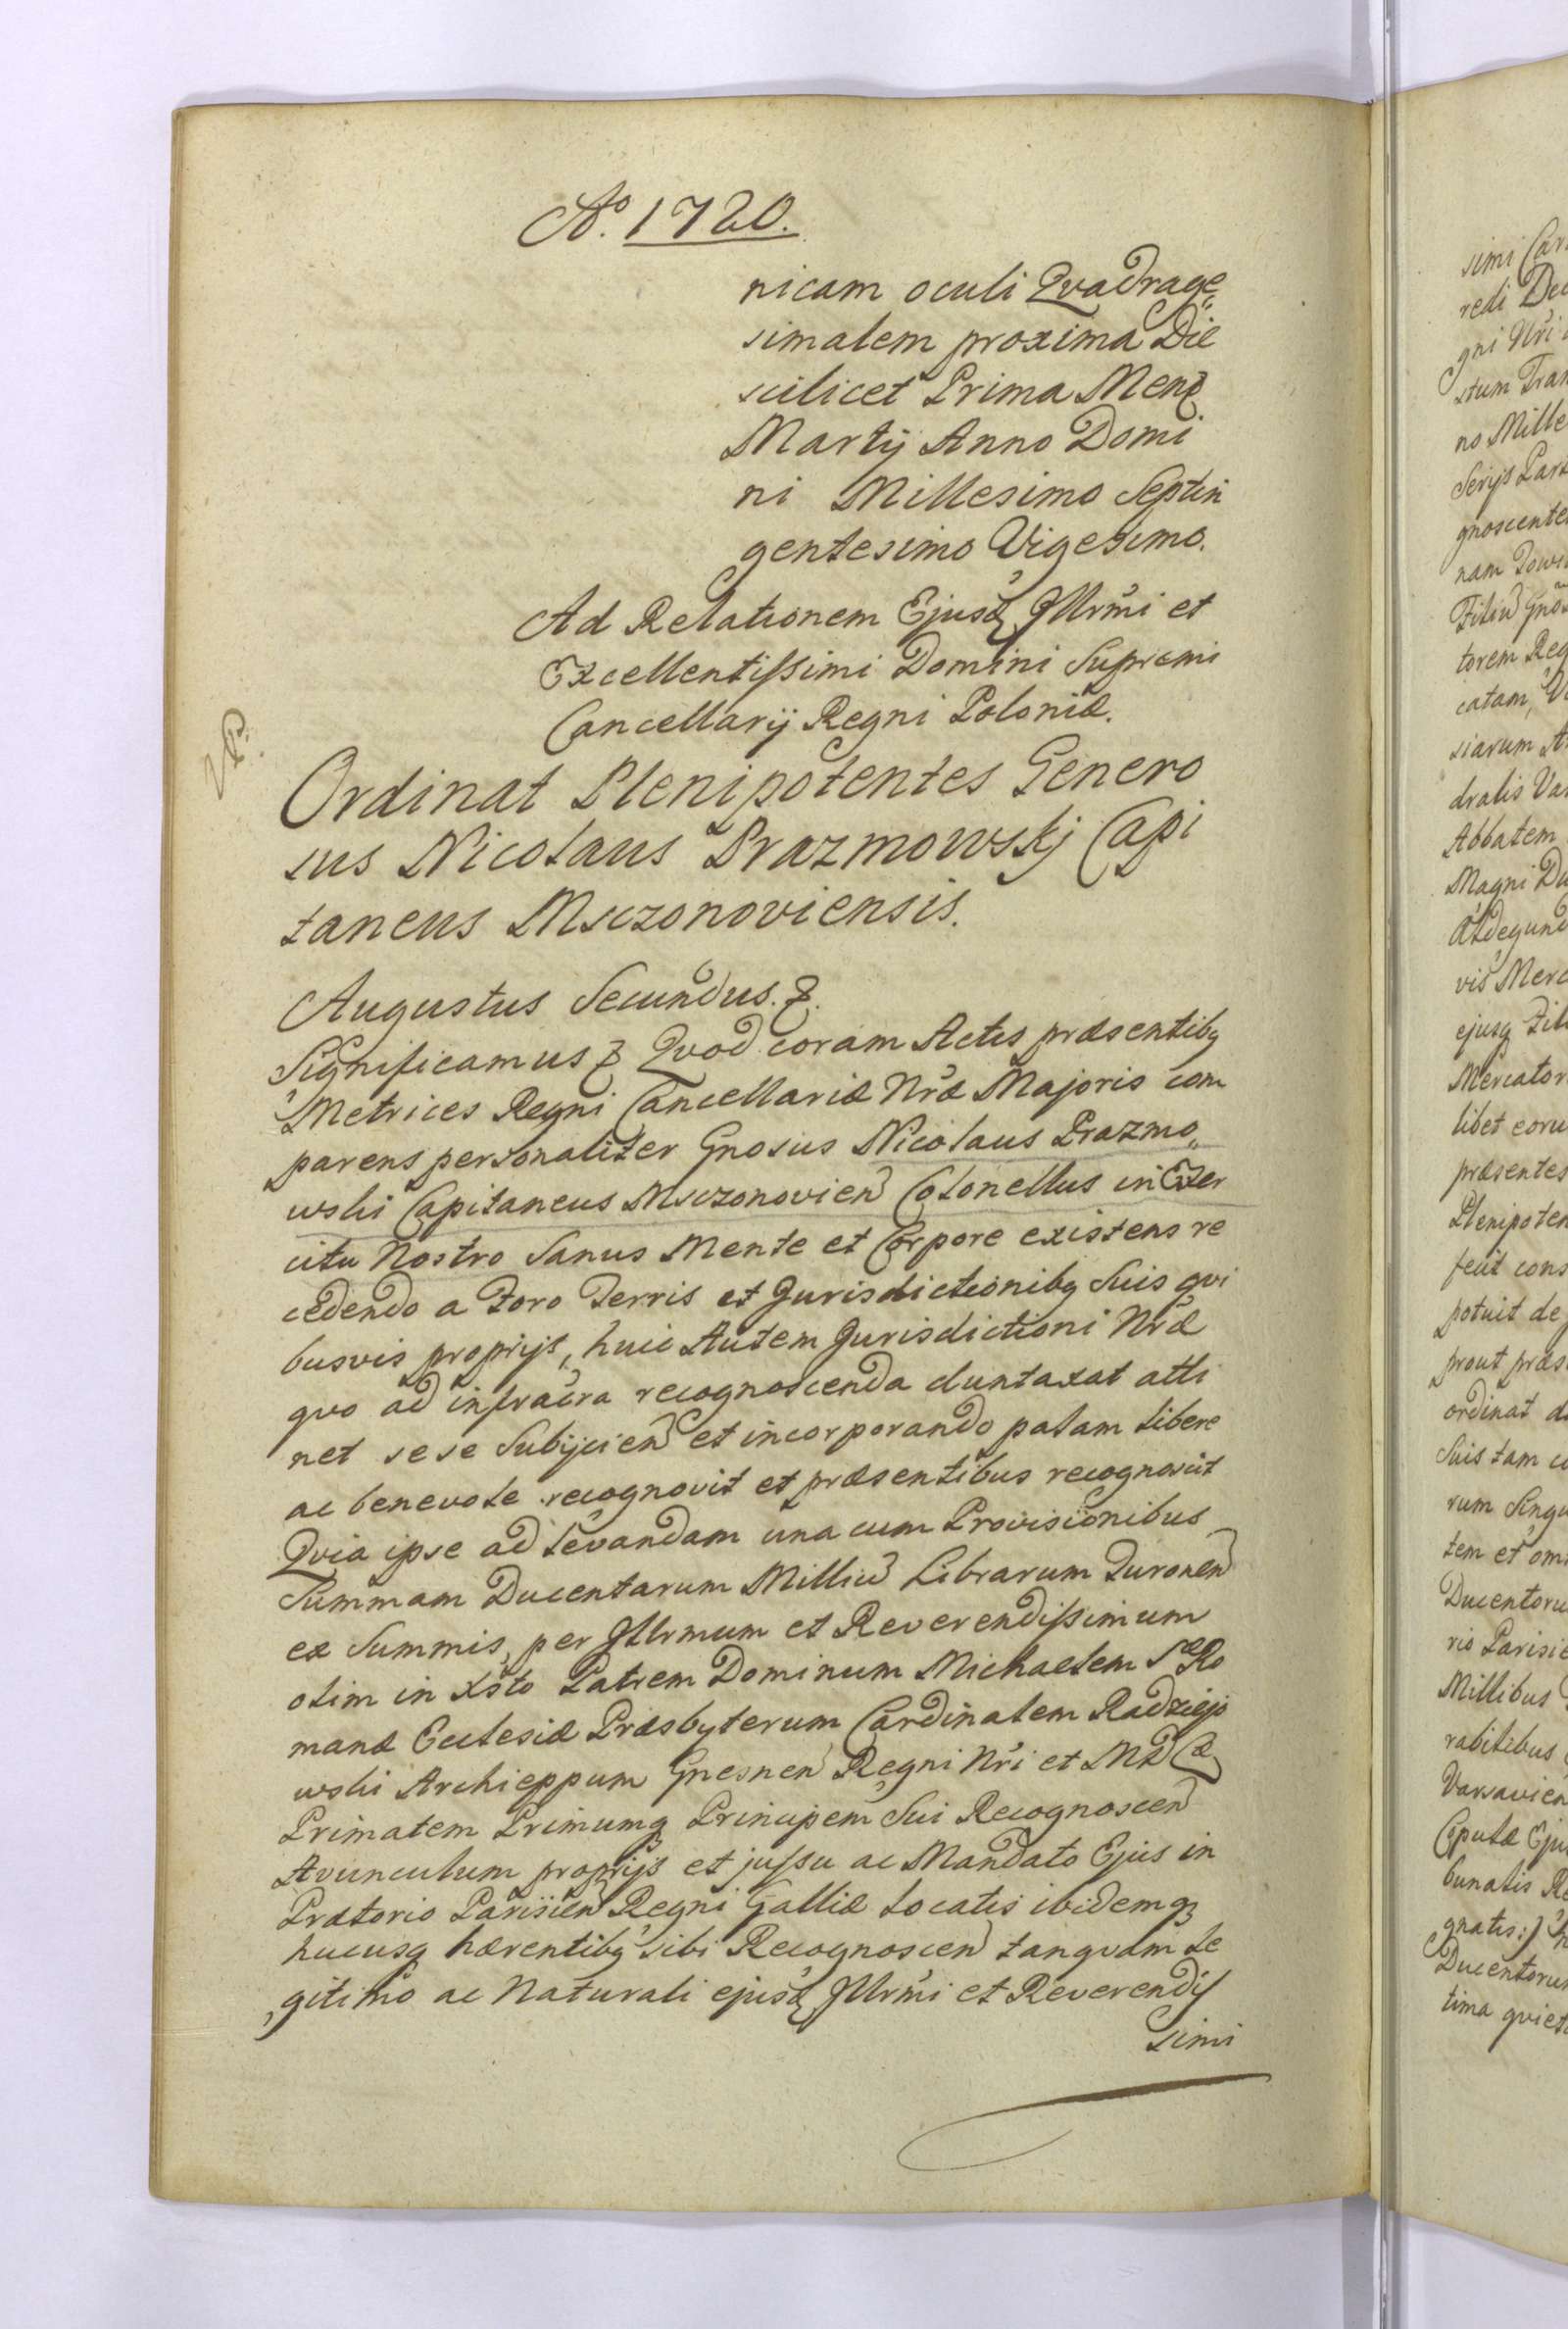 Aº. 1720.
nicam oculi Qvadrage„
simalem proxima Die
scilicet Prima Mens
Martij Anno Domi
ni Millesimo Septin
gentesimo Vigesimo.
Ad Relationem Ejusd Illrmi et
Excellentissimi Domini Supremi
Cancellarij Regni Poloniæ.
Ordinat Plenipotentes Genero
sus Nicolaus Prazmowskj Capi
taneus Msczonoviensis.
Augustus Secundus. &.
Significamus & Qvod coram Actis præsentibq
Metrices Regni Cancellariæ Nræ Majoris com
parens personaliter Gnosus Nicolaus Prazmo„
wski Capitaneus Msczonovien Colonellus in Exer
citu Nostro Sanus Mente et Corpore existens re
cedendo a Foro Terris et Jurisdictionibq Suis qvi
busvis proprijs, huic Autem Jurisdictioni Nræ
qvo ad infracra recognoscenda duntaxat atti
net sese Subijcien et incorporando palam libere
ac benevole recognovit et præsentibus recognoscit
Qvia ipse ad levandam una cum Provisionibus
Summam Ducentarum Milliu Librarum Turonen
ex Summis, per Illrmum et Reverendissimum
olim in Xsto Patrem Dominum Michaelem Sæ Ro
manæ Ecclesiæ Præsbyterum Cardinalem Radziejo
wski Archieppum Gnesnen Regni Nri et MD &
Primatem Primumq Principem Sui Recognoscen
Avunculum proprijs et jussu ac Mandato Ejus in
Prætorio Parisien Regni Galliæ locatis ibidemq
hucusq hærentibq sibi Recognoscen tanqvam le
gitimo ac Naturali ejusd Illrmi et Reverendis
simi
simi Car
redi De
gni Nri
stum Tran
no Mille
gnoscente
nam
torem Reg
catam,
siarum A
dralis Va
Abbatem
Magni Du
vis Merc
ejusq Fil
Mercator
libet eoru
præsentes
Plenipoten
fecit cons
potuit de
prout præs
ordinat d
Suis tam c
rum Singu
tem et om
Ducentoru
rio Parisie
Millibus
rabilibus
Varsavien
bunalis Re
gnatis:)
Ducentorum
tima qviet